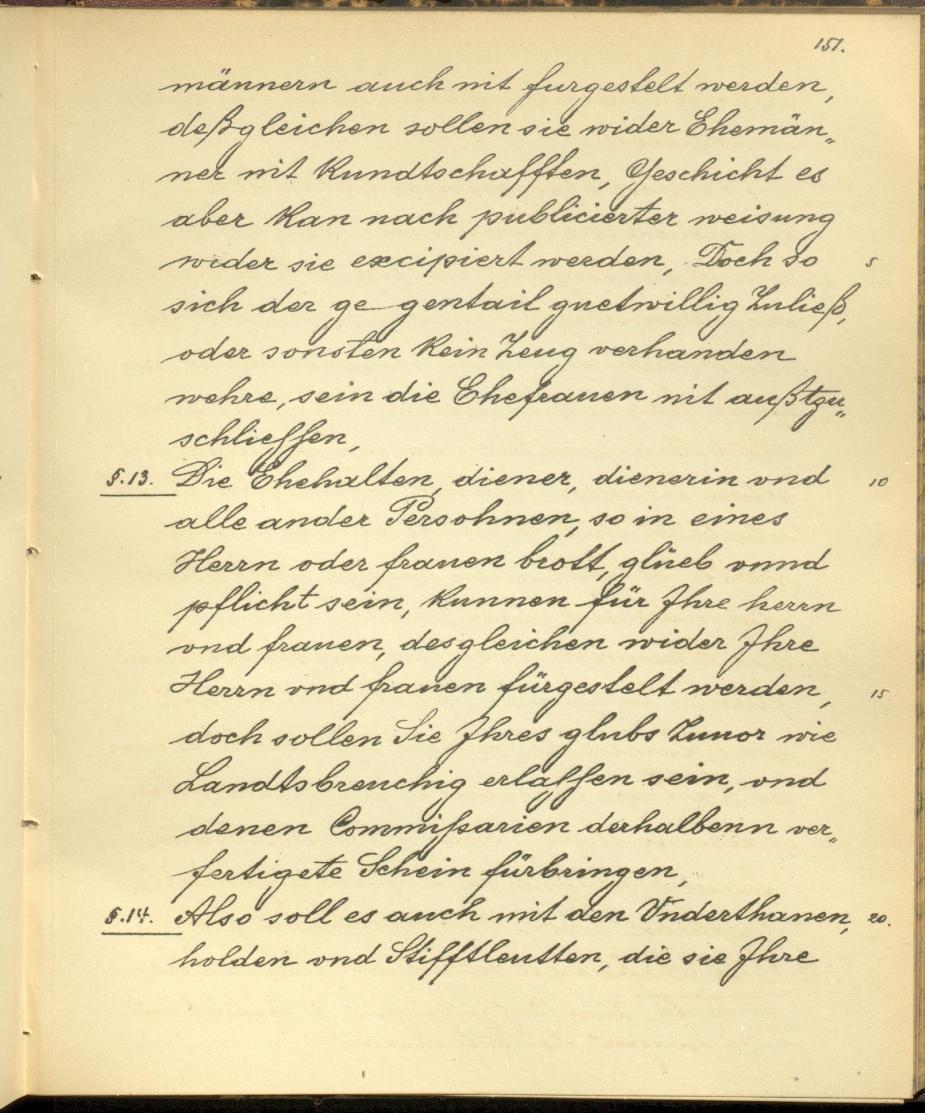 151.
männern auch nit furgestelt werden,
deßgleichen sollen sie wider Ehemän„
ner nit Kundtschafften, Geschicht es
aber Kan nach publicierter weisung
wider sie excipiert werden, Doch so 5
sich der ge gentail guetwillig Zuließ,
oder sonsten Kein Zeug verhanden
wehre, sein die Ehefrauen nit außtzu„
schliessen,
§.13. Die Ehehalten, diener, dienerin vnd 10
alle ander Persohnen, so in eines
Herrn oder frauen brott, glüeb vnnd
pflicht sein, Kunnen für Jhre herrn
vnd frauen, desgleichen wider Jhre
Herrn vnd frauen fürgestelt werden, 15
doch sollen Sie Jhres glubs Zuuor wie
Landtsbreuchig erlassen sein, vnd
denen Commißarien derhalbenn ver„
fertigete Schein fürbringen,
§.14. Also soll es auch mit den Vnderthanen, 20.
holden vnd Stifftleutten, die sie Jhre